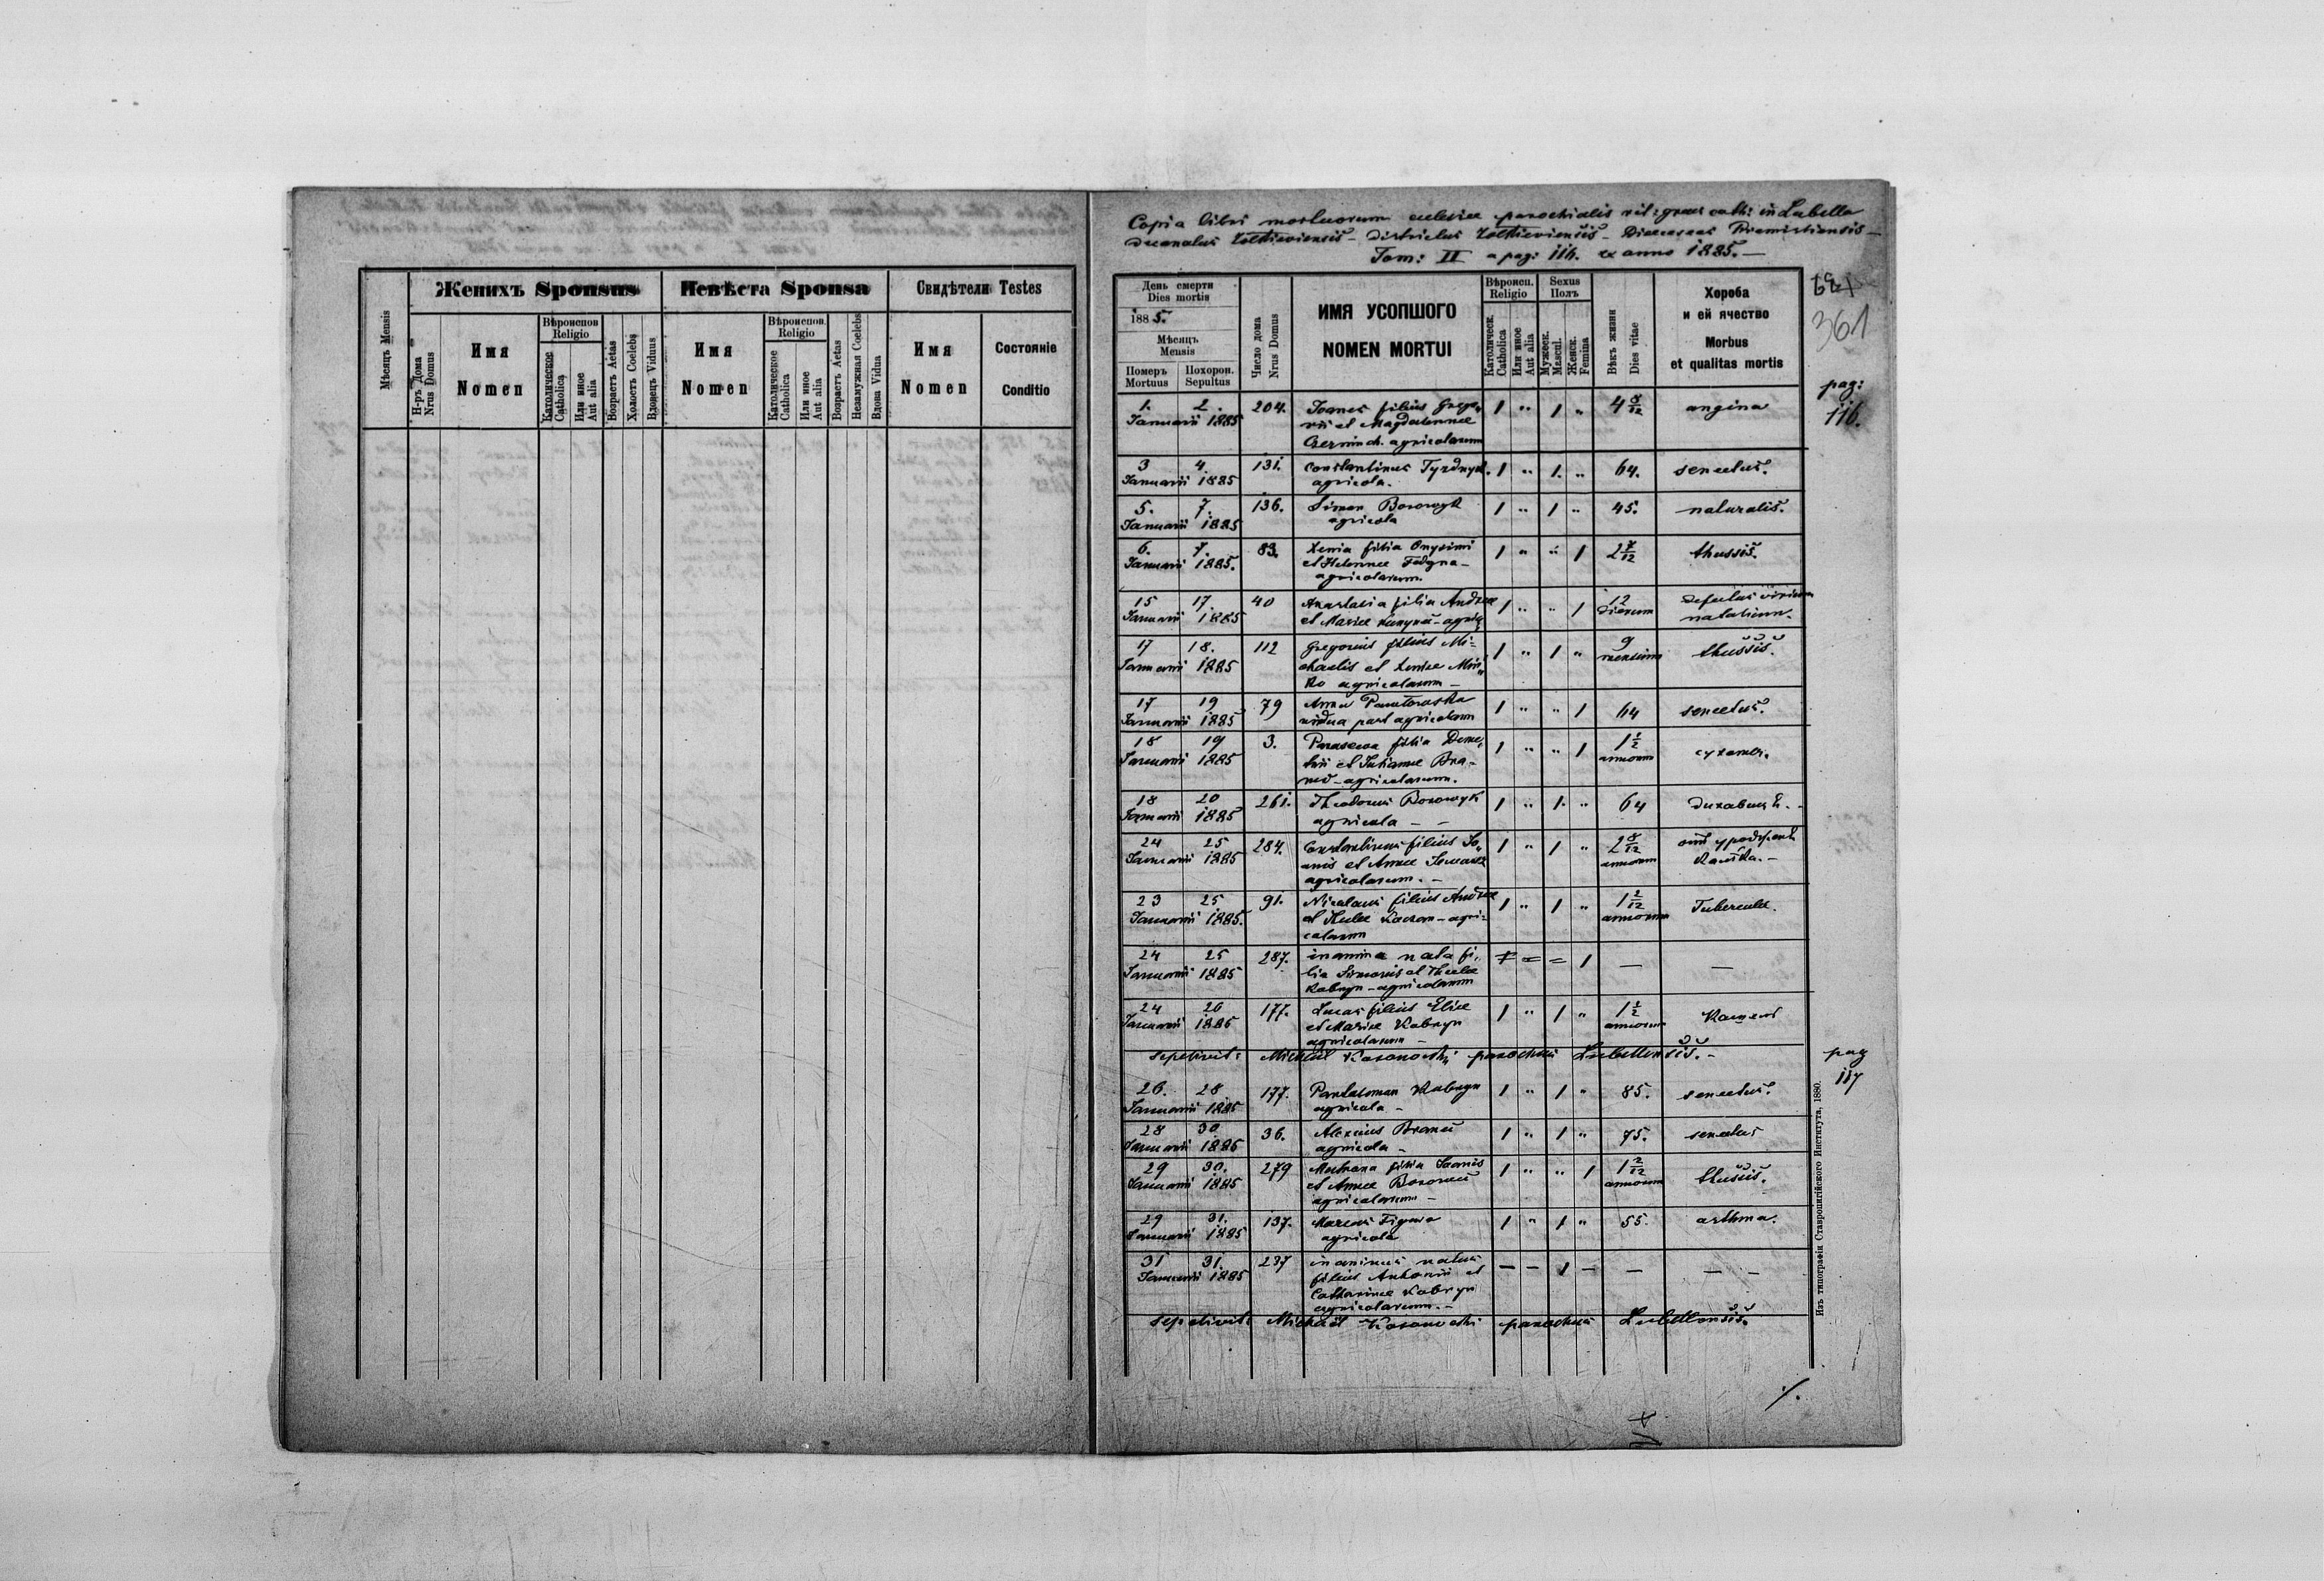 Женихъ Sponsus
Невѣста Sponsa
Свидѣтели Testes
Мѣсяцъ Mensis
Н-ръ Дома
Nrus Domus
Имя
Nomen
Вѣроиспов
Religio
Католическое
Catholica
Или иное
Aut alia
Возрастъ Aetas
Холостъ Coelebs
Вдовецъ Viduus
Имя
Nomen
Вѣроиспов.
Religio
Католическое
Catholica
Или иное
Aut alia
Возрастъ Aetas
Незамужная Coelebs
Вдова Vidua
Имя
Nomen
Состояніе
Conditio
Copia libri mortuorum ecclesiae parochialis rit: graeci cath: in Lubella
Decanatus Zolkieviensis - Districtus Zolkieviensis - Dioeceseos Premisliensis -
Tom: II a pag: 116. ex anno 1885. -
День смерти
Dies mortis
1885.
Мѣсяцъ
Mensis
Померъ
Mortuus
Похорон.
Sepultus
Число дома
Nrus Domus
ИМЯ УСОПШОГО
NOMEN MORTUI
Вѣроисп.
Religio
Католическ.
Catholica
Или иное
Aut alia
Sexus
Полъ
Мужеск.
Mascul.
Женск.
Femina
Вѣкъ жизни
Dies vitae
Хороба
и ей ячество
Morbus
et qualitas mortis
361
pag:
116.
1. 2. 204. Joannes filius Grego- 1 " 1 " 4 8/12 angina
Januarii 1885 rii et Magdalennae
agricolarum
3 4. 131. Constantinus 1 " 1. " 64. senectus.
Januarii 1885 agricola.
5. 7. 136. Simon Borowyk 1 " 1 " 45. naturalis.
Januarii 1885 agricola
6. 7. 83. Xenia filia Onysimi 1 " " 1 2 7/12 thussis.
Januarii 1885. et Helennae Fedyna -
agricolarum.
15 17 40 Anastasia filia Andreae 1 " " 1 12 defectus virium
Januarii 1885 et Mariae dierum natalium.
17 18. 112 Gregorius filius Mi- 1 " 1 " 9 thussis.
Januarii 1885 chaelis et Xeniae mensium
ko agricolarum -
17 19 79 Anna 1 " " 1 64 senectus.
Januarii 1885 vidua post agricolam
18 19 3. Parascea filia Deme- 1 " " 1 1 1/2
Januarii 1885 trii et Julianae annorum
agricolarum.
18 20 261. Theodorus Borowyk 1 " 1. " 64
Januarii 1885 agricola - -
24 25 284. Constantinus filius Jo- 1 " 1 " 2 8/12
Januarii 1885 anis et Annae annorum
agricolarum. -
23 25 91. Nicolaus filius Andreae 1 " 1 " 1 2/12 Tubercula.
Januarii 1885. et Theclae agri- annorum
colarum
24 25 287. inanima nata fi- 1 — —
Januarii 1885 lia Simonis et Theclae
Kobryn - agricolarum
24 26 177. Lucas filius Eliae 1 " 1 " 1 1/2
Januarii 1885 et Mariae Kobryn annorum
agricolarum -
sepelivit: Michael parochus Lubellensis. -
pag
117
26. 28 177. Pantaleman Kobryn 1 " 1 " 85. senectus.
Januarii 1885 agricola -
28 30 36. Alexius 1 " 1 " 75. senectus
Januarii 1885 agricola -
29 30. 279 filia Joannis 1 " " 1 1 2/12 thussis.
Januarii 1885 et Annae annorum
agricolarum -
29 31. 137. Marcus Figura 1 " 1 " 55. asthma.
Januarii 1885 agricola
31 31. 237 inanimus natus — — 1 — — — —
Januarii 1885 filius Antonii et
Catharinae Kobryn
agricolarum. -
sepelivit: Michael parochus Lubellensis.
Изъ типографіи Ставропигійского Института, 1880.